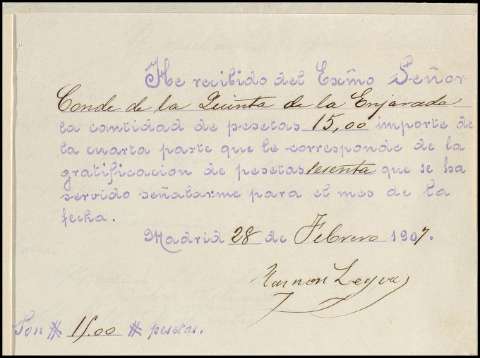 He recibido del Exmo Señor
Conde de la Quinta de la Enjarada
la cantidad de pesetas 15,00 importe de
la cuarta parte que le corresponde de la
gratificacion de pesetas sesenta que se ha
servido señalarme para el mes de la
fecha.
Madrid 28 de Febrero 1907.
Ramon Leyva
Son # 15.00 # pesetas.